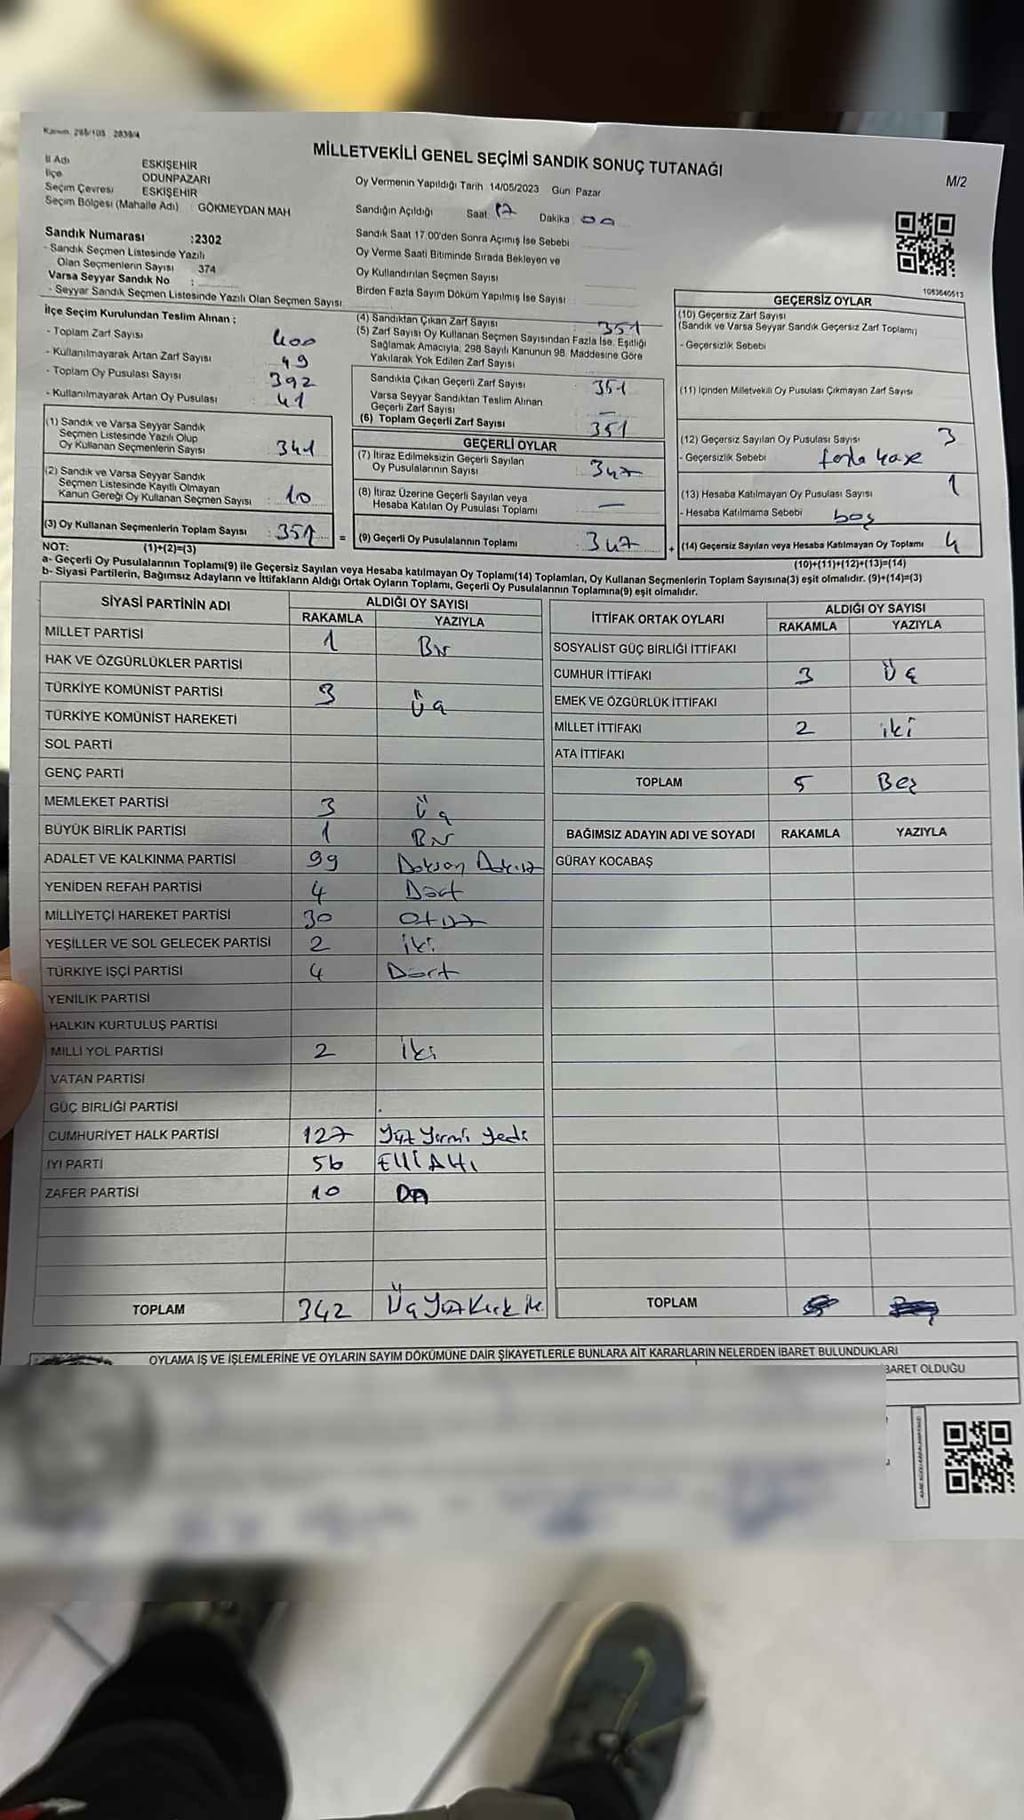 Kanun: 298/105 2839/4
MİLLETVEKİLİ GENEL SEÇİMİ SANDIK SONUÇ TUTANAĞI
M/2
İl Adı ESKİŞEHİR
İlçe ODUNPAZARI
Seçim Çevresi ESKİŞEHİR
Seçim Bölgesi (Mahalle Adı) GÖKMEYDAN MAH
Oy Vermenin Yapıldığı Tarih 14/05/2023 Gün Pazar
Sandığın Açıldığı Saat 17 Dakika 00
Sandık Saat 17.00'den Sonra Açımış İse Sebebi
Oy Verme Saati Bitiminde Sırada Bekleyen ve
Oy Kullandırılan Seçmen Sayısı
Birden Fazla Sayım Döküm Yapılmış İse Sayısı
Sandık Numarası :2302
- Sandık Seçmen Listesinde Yazılı
Olan Seçmenlerin Sayısı 374
Varsa Seyyar Sandık No :
- Seyyar Sandık Seçmen Listesinde Yazılı Olan Seçmen Sayısı
1083640513
İlçe Seçim Kurulundan Teslim Alınan ;
- Toplam Zarf Sayısı 400
- Kullanılmayarak Artan Zarf Sayısı 49
- Toplam Oy Pusulası Sayısı 392
- Kullanılmayarak Artan Oy Pusulası 41
(1) Sandık ve Varsa Seyyar Sandık
Seçmen Listesinde Yazılı Olup
Oy Kullanan Seçmenlerin Sayısı 341
(2) Sandık ve Varsa Seyyar Sandık
Seçmen Listesinde Kayıtlı Olmayan
Kanun Gereği Oy Kullanan Seçmen Sayısı 10
(3) Oy Kullanan Seçmenlerin Toplam Sayısı 351 =
(4) Sandıktan Çıkan Zarf Sayısı 351
(5) Zarf Sayısı Oy Kullanan Seçmen Sayısından Fazla İse, Eşitliği
Sağlamak Amacıyla, 298 Sayılı Kanunun 98. Maddesine Göre
Yakılarak Yok Edilen Zarf Sayısı
Sandıkta Çıkan Geçerli Zarf Sayısı 351
Varsa Seyyar Sandıktan Teslim Alınan
Geçerli Zarf Sayısı –
(6) Toplam Geçerli Zarf Sayısı 351
GEÇERLİ OYLAR
(7) İtiraz Edilmeksizin Geçerli Sayılan
Oy Pusulalarının Sayısı 347
(8) İtiraz Üzerine Geçerli Sayılan veya
Hesaba Katılan Oy Pusulası Toplamı –
(9) Geçerli Oy Pusulalarının Toplamı 347 +
GEÇERSİZ OYLAR
(10) Geçersiz Zarf Sayısı
(Sandık ve Varsa Seyyar Sandık Geçersiz Zarf Toplamı)
- Geçersizlik Sebebi
(11) İçinden Milletvekili Oy Pusulası Çıkmayan Zarf Sayısı
(12) Geçersiz Sayılan Oy Pusulası Sayısı 3
- Geçersizlik Sebebi
(13) Hesaba Katılmayan Oy Pusulası Sayısı 1
- Hesaba Katılmama Sebebi boş
(14) Geçersiz Sayılan veya Hesaba Katılmayan Oy Toplamı 4
NOT: (1)+(2)=(3)
(10)+(11)+(12)+(13)=(14)
a- Geçerli Oy Pusulalarının Toplamı(9) ile Geçersiz Sayılan veya Hesaba katılmayan Oy Toplamı(14) Toplamları, Oy Kullanan Seçmenlerin Toplam Sayısına(3) eşit olmalıdır. (9)+(14)=(3)
b- Siyasi Partilerin, Bağımsız Adayların ve İttifakların Aldığı Ortak Oyların Toplamı, Geçerli Oy Pusulalarının Toplamına(9) eşit olmalıdır.
SİYASİ PARTİNİN ADI ALDIĞI OY SAYISI
RAKAMLA YAZIYLA
MİLLET PARTİSİ 1 Bir
HAK VE ÖZGÜRLÜKLER PARTİSİ
TÜRKİYE KOMÜNİST PARTİSİ 3 Üç
TÜRKİYE KOMÜNİST HAREKETİ
SOL PARTİ
GENÇ PARTİ
MEMLEKET PARTİSİ 3 Üç
BÜYÜK BİRLİK PARTİSİ 1 Bir
ADALET VE KALKINMA PARTİSİ 99 Doksan Dokuz
YENİDEN REFAH PARTİSİ 4 Dört
MİLLİYETÇİ HAREKET PARTİSİ 30 Otuz
YEŞİLLER VE SOL GELECEK PARTİSİ 2 iki
TÜRKİYE İŞÇİ PARTİSİ 4 Dört
YENİLİK PARTİSİ
HALKIN KURTULUŞ PARTİSİ
MİLLİ YOL PARTİSİ 2 iki
VATAN PARTİSİ
GÜÇ BİRLİĞİ PARTİSİ
CUMHURİYET HALK PARTİSİ 127 Yüz Yirmi Yedi
İYİ PARTİ 56 Elli Altı
ZAFER PARTİSİ 10 On
TOPLAM 342 Üç Yüz Kırk iki
İTTİFAK ORTAK OYLARI ALDIĞI OY SAYISI
RAKAMLA YAZIYLA
SOSYALİST GÜÇ BİRLİĞİ İTTİFAKI
CUMHUR İTTİFAKI 3 Üç
EMEK VE ÖZGÜRLÜK İTTİFAKI
MİLLET İTTİFAKI 2 iki
ATA İTTİFAKI
TOPLAM 5 Beş
BAĞIMSIZ ADAYIN ADI VE SOYADI RAKAMLA YAZIYLA
GÜRAY KOCABAŞ
TOPLAM
OYLAMA İŞ VE İŞLEMLERİNE VE OYLARIN SAYIM DÖKÜMÜNE DAİR ŞİKAYETLERLE BUNLARA AİT KARARLARIN NELERDEN İBARET BULUNDUKLARI
BARET OLDUĞU